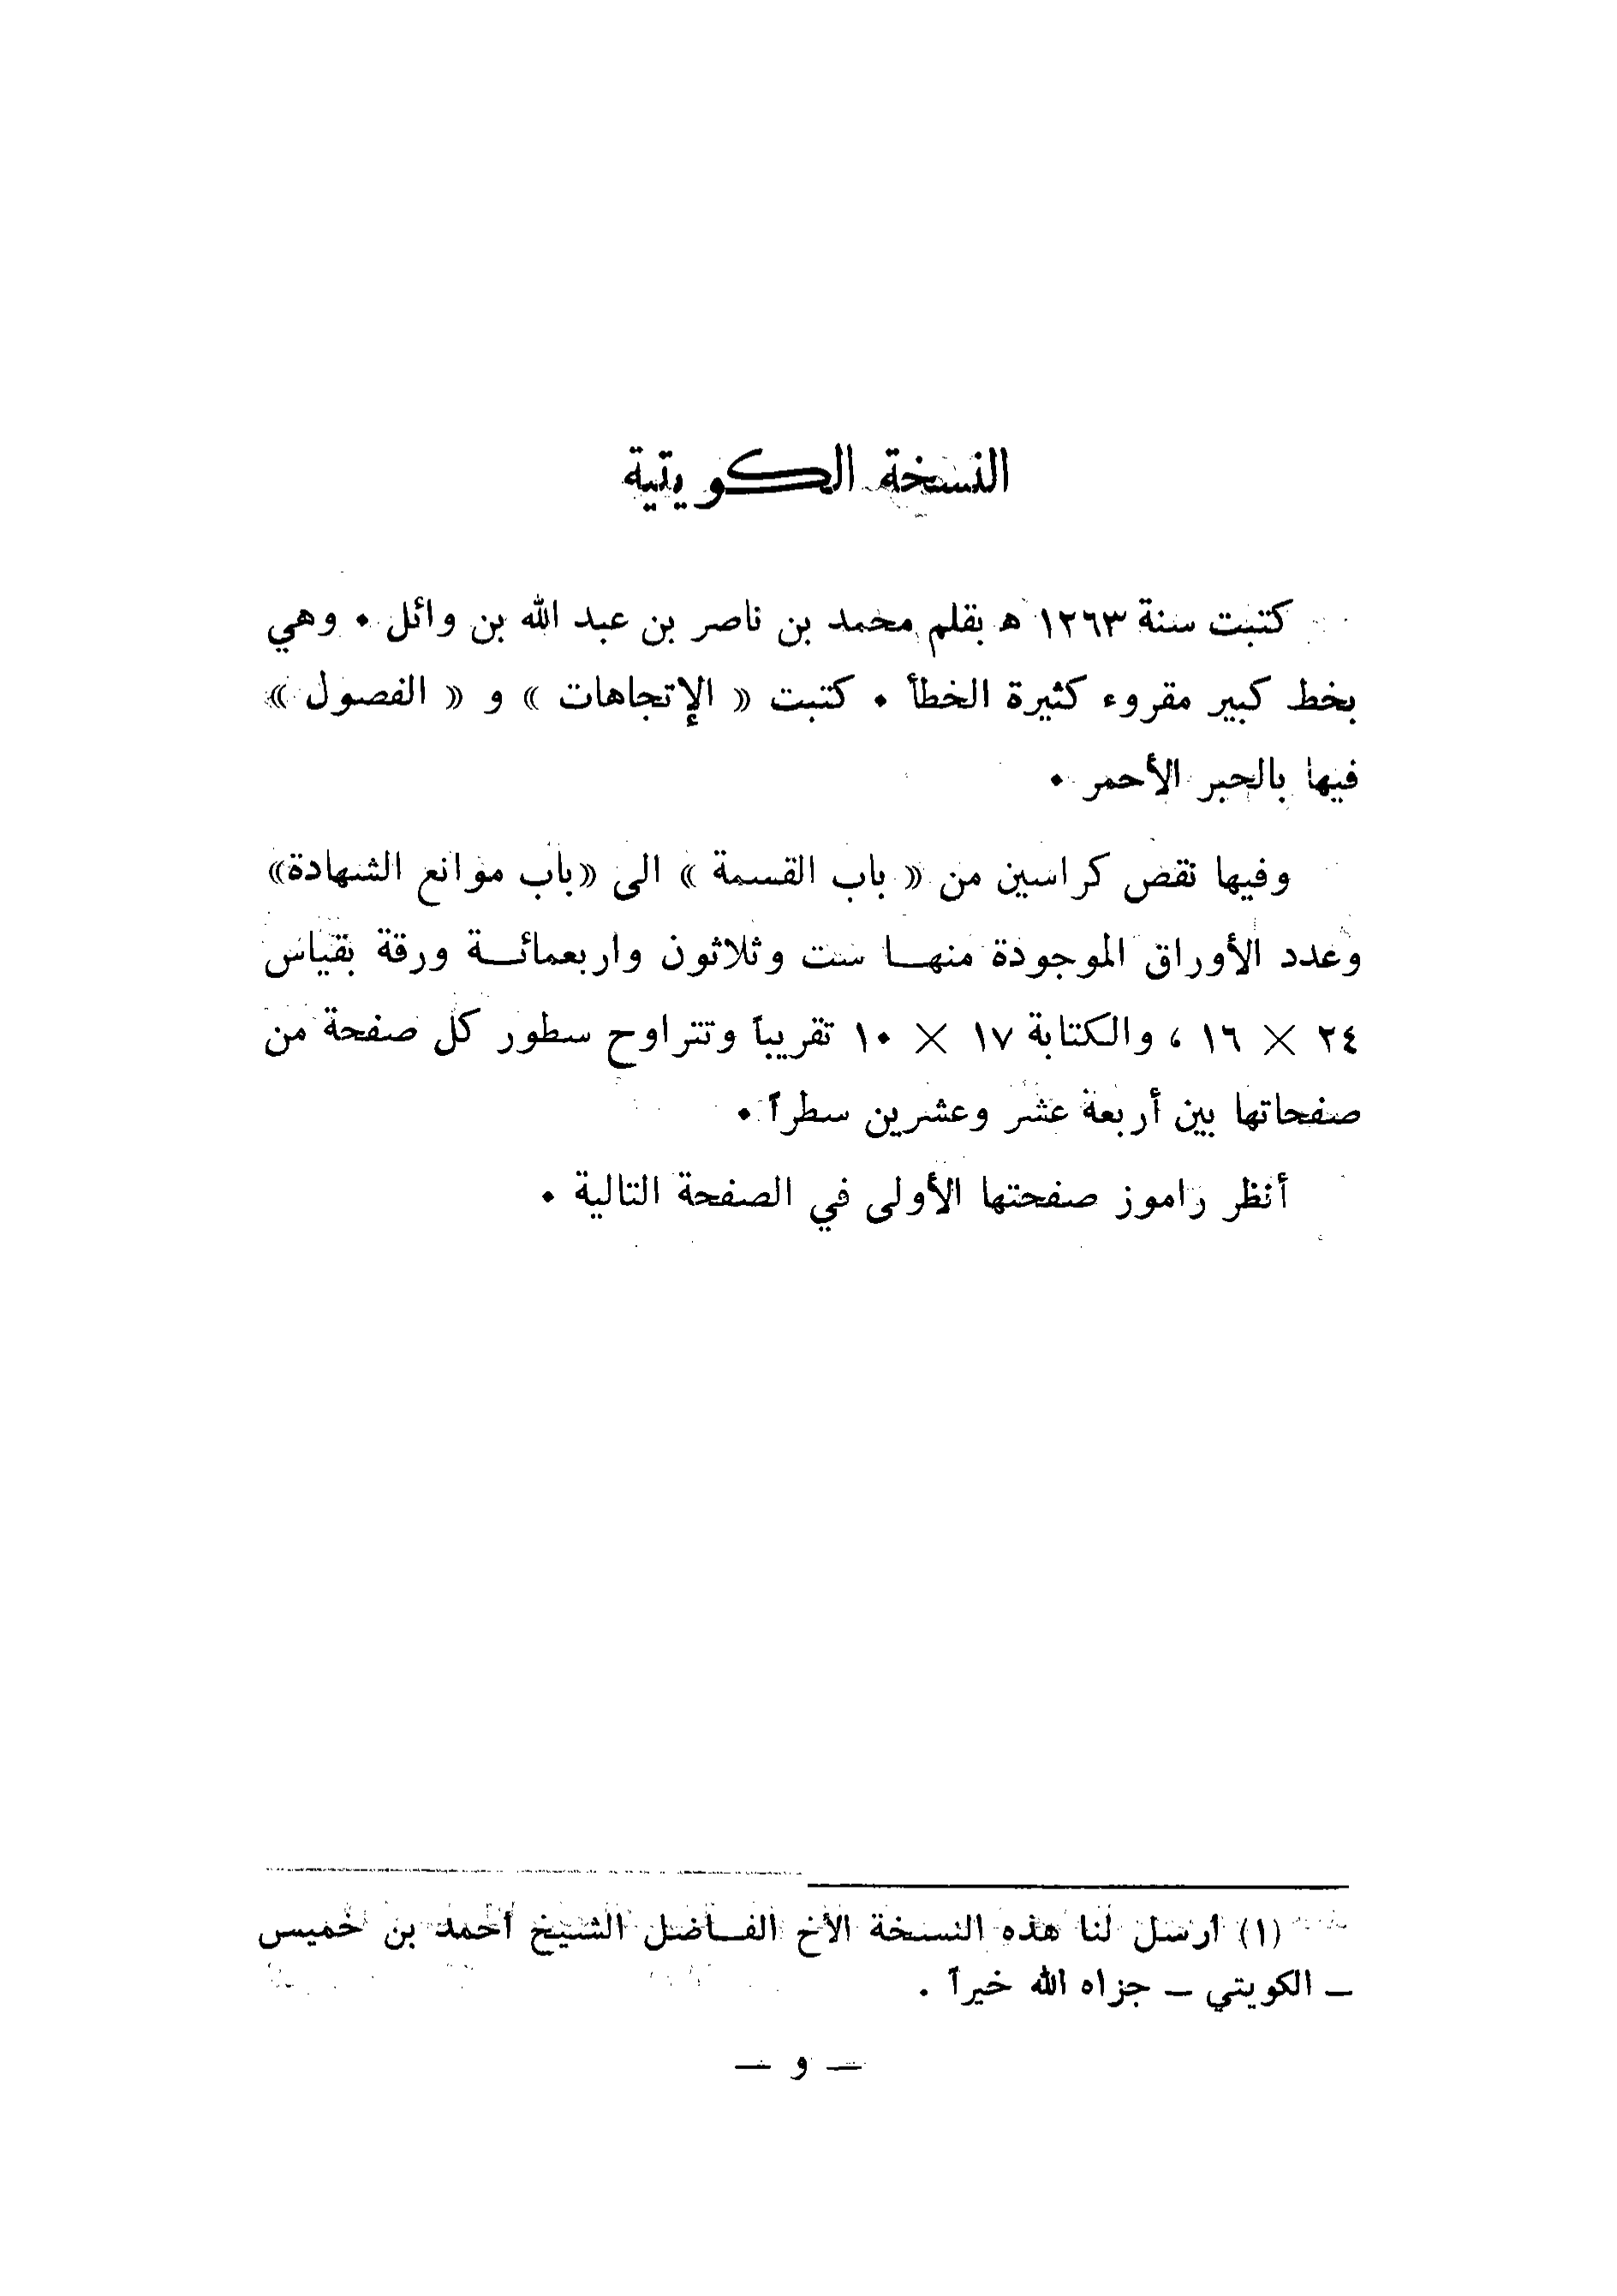 النسخة الكويتية
كتبت سنة ١٢٦٣ هـ بقلم محمد بن ناصر بن عبد الله بن وائل . وهي
بخط كبير مقروء كثيرة الخطأ . كتبت « الإتجاهات » و « الفصول »
فيها بالحبر الأحمر .
وفيها نقص كراسين من « باب القسمة » الى «باب موانع الشهادة»
وعدد الأوراق الموجودة منها ست وثلاثون واربعمائة ورقة بقياس
٢٤ × ١٦ ، والكتابة ١٧ × ١٠ تقريباً وتتراوح سطور كل صفحة من
صفحاتها بين أربعة عشر وعشرين سطراً .
أنظر راموز صفحتها الأولى في الصفحة التالية .
(١) أرسل لنا هذه النسخة الأخ الفاضل الشيخ أحمد بن خميس
ـ الكويتي ـ جزاه الله خيراً .
— و —